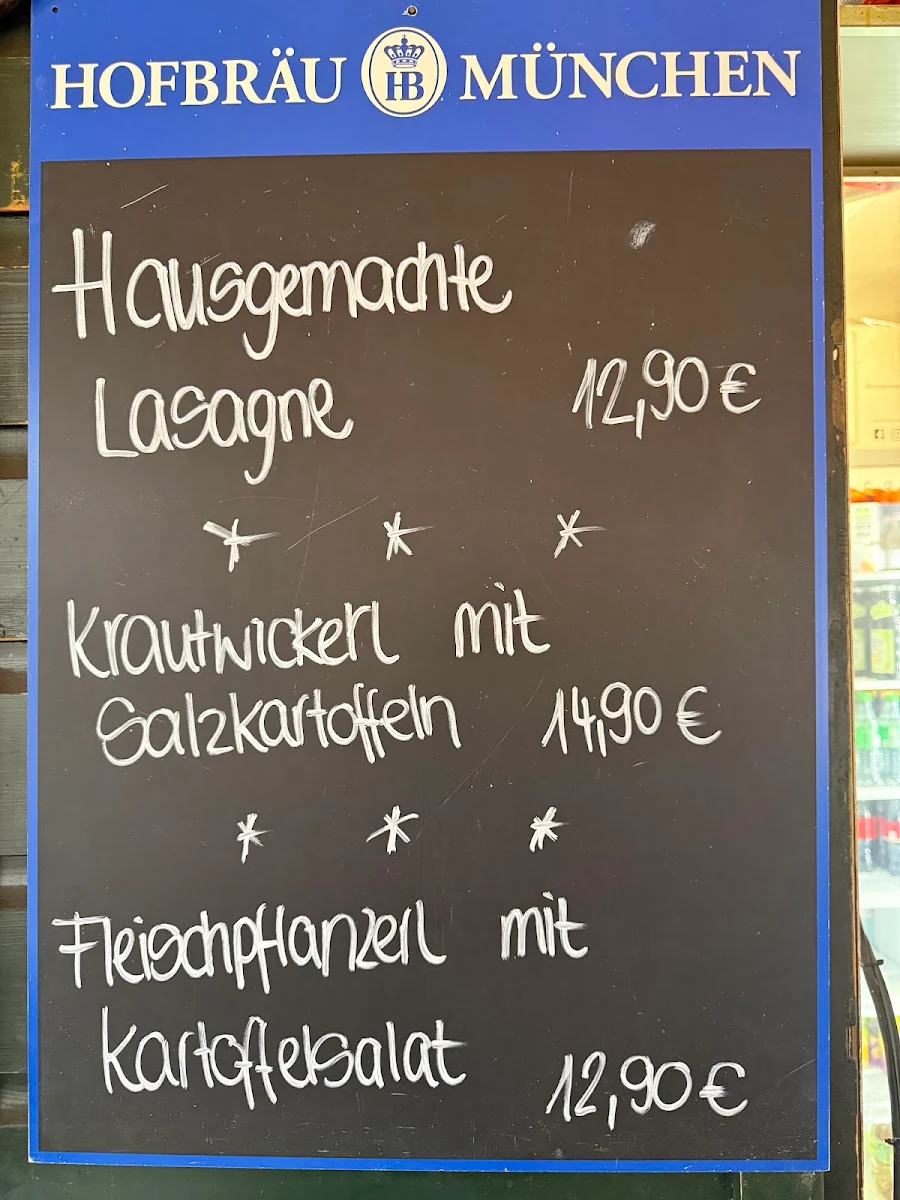 HOFBRÄU HB MÜNCHEN
Hausgemachte
Lasagne 12,90 €
* * *
Krautwickerl mit
Salzkartoffeln 14,90 €
* * *
Fleischpflanzerl mit
Kartoffelsalat 12,90 €